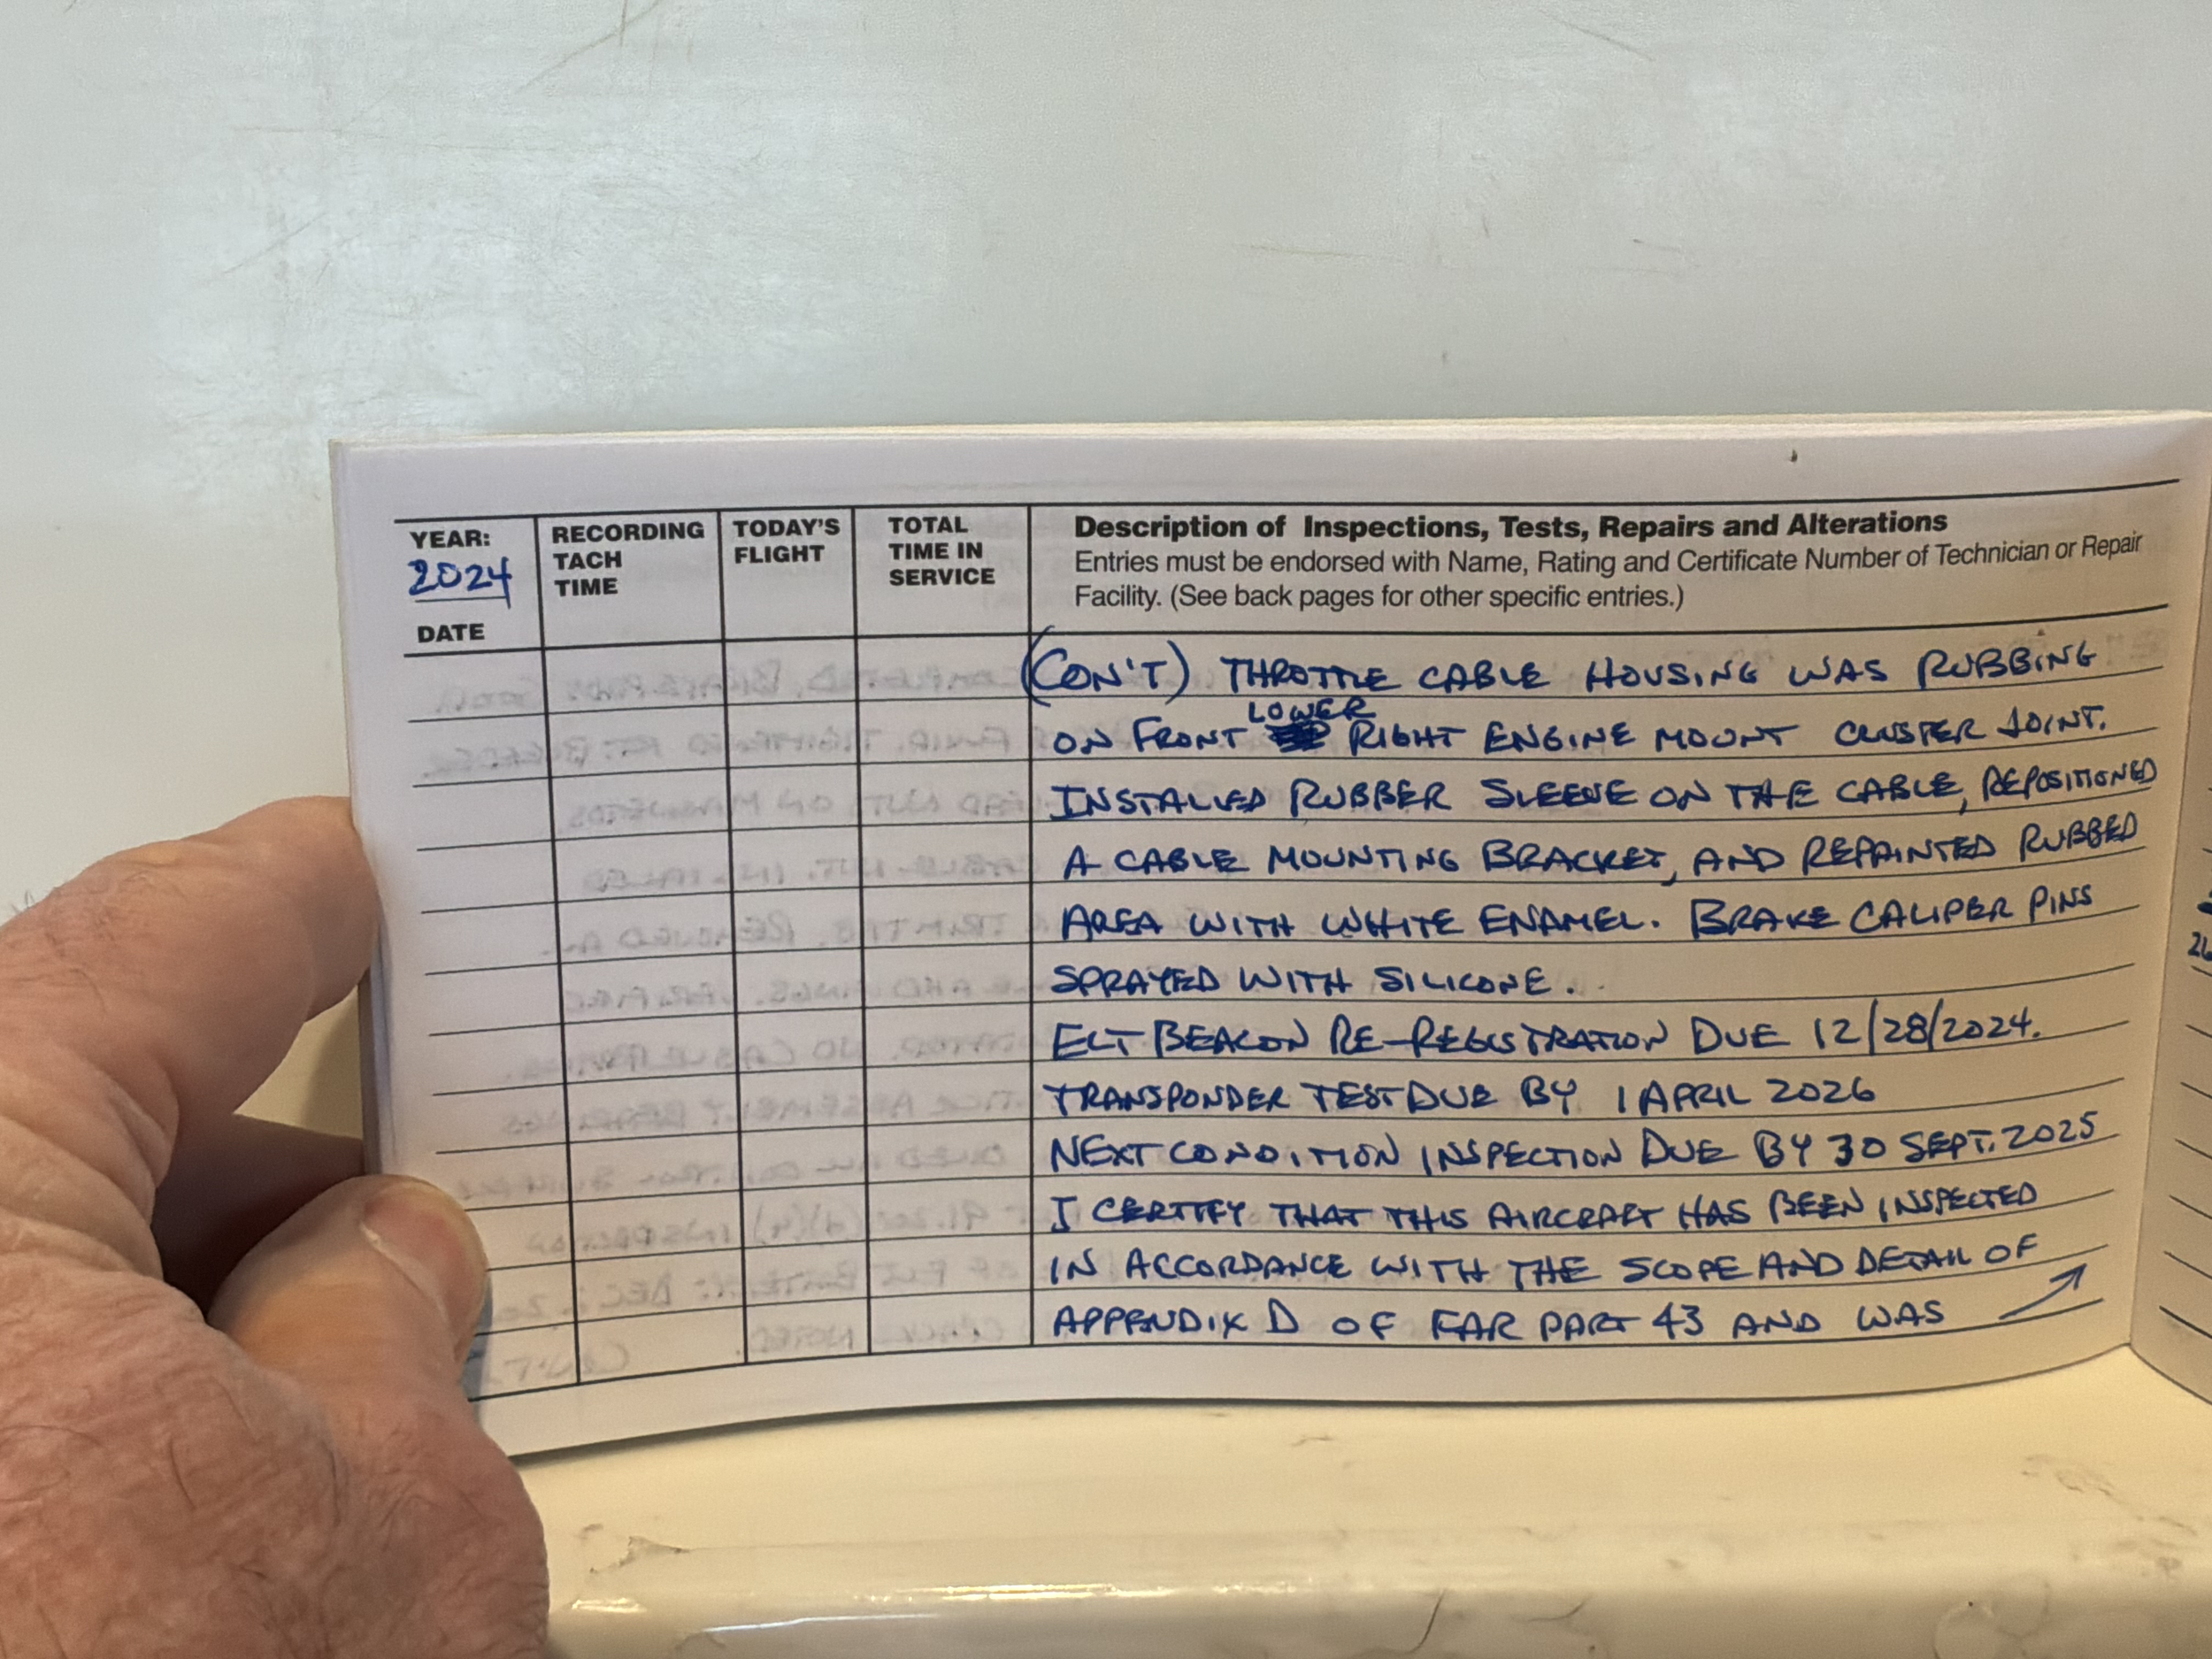 YEAR:
2024
DATE
RECORDING
TACH
TIME
TODAY'S
FLIGHT
TOTAL
TIME IN
SERVICE
Description of Inspections, Tests, Repairs and Alterations
Entries must be endorsed with Name, Rating and Certificate Number of Technician or Repair
Facility. (See back pages for other specific entries.)
(CON'T) THROTTLE CABLE HOUSING WAS RUBBING
LOWER
ON FRONT RIGHT ENGINE MOUNT CLUSTER JOINT.
INSTALLED RUBBER SLEEVE ON THE CABLE, REPOSITIONED
A CABLE MOUNTING BRACKET, AND REPAINTED RUBBED
AREA WITH WHITE ENAMEL. BRAKE CALIPER PINS
SPRAYED WITH SILICONE.
ELT BEACON RE-REGISTRATION DUE 12/28/2024.
TRANSPONDER TEST DUE BY 1 APRIL 2026
NEXT CONDITION INSPECTION DUE BY 30 SEPT. 2025
I CERTIFY THAT THIS AIRCRAFT HAS BEEN INSPECTED
IN ACCORDANCE WITH THE SCOPE AND DETAIL OF
APPENDIX D OF FAR PART 43 AND WAS